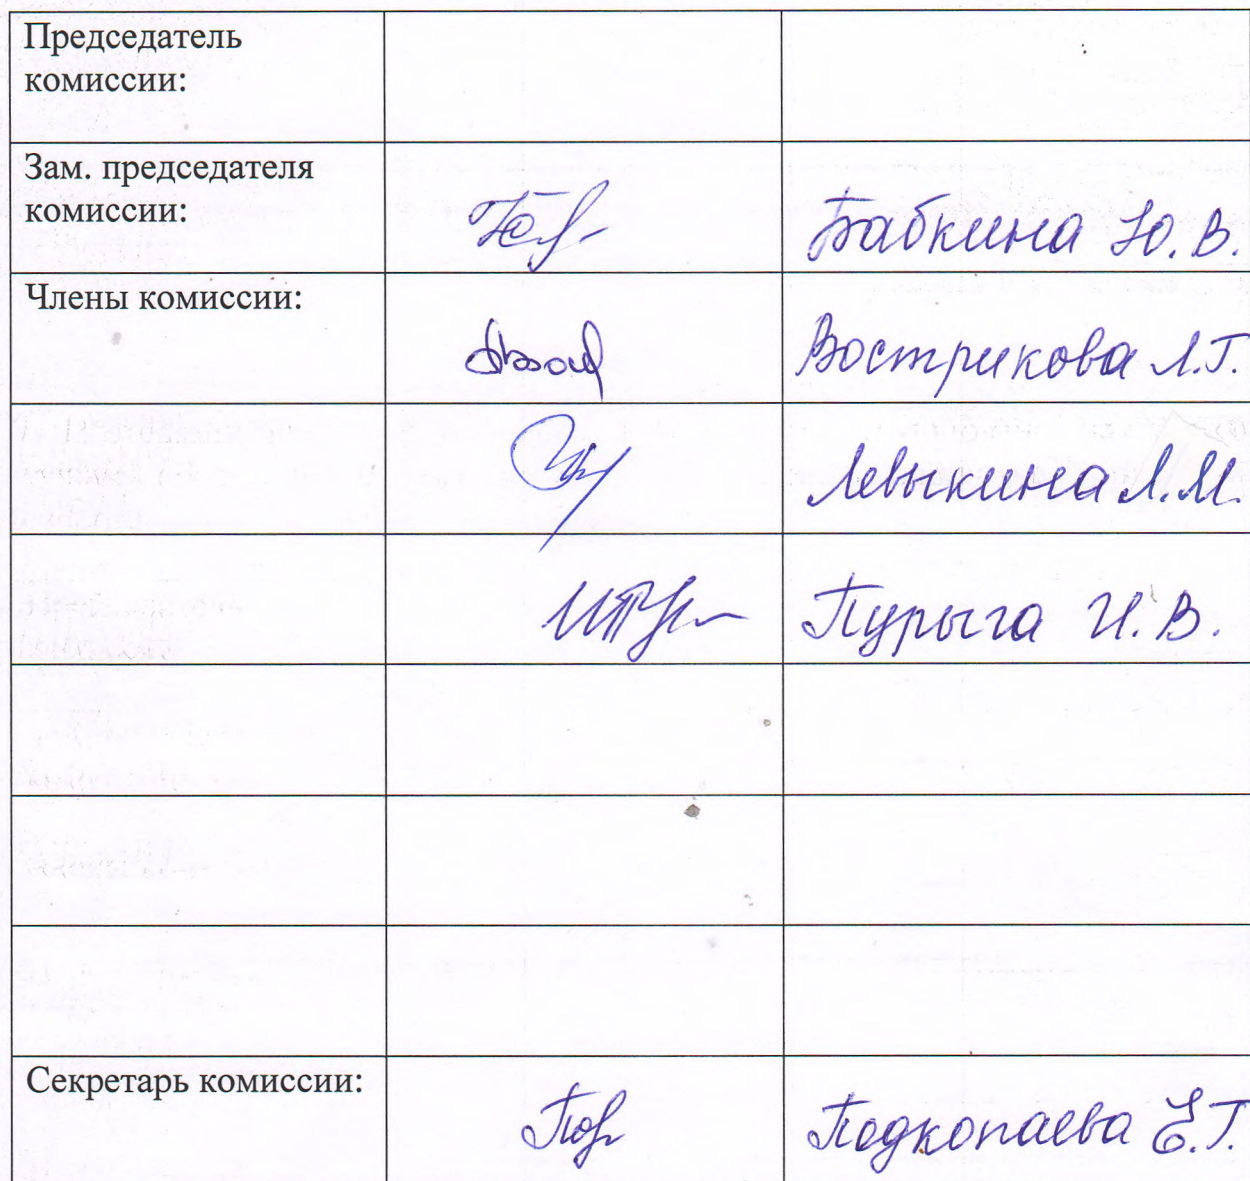 Председатель
комиссии:
Зам. председателя
комиссии:
Бабкина Ю. В.
Члены комиссии:
Вострикова Л.Г.
Левыкина Л.М.
Пурыга И. В.
Секретарь комиссии:
Подкопаева Е.Г.